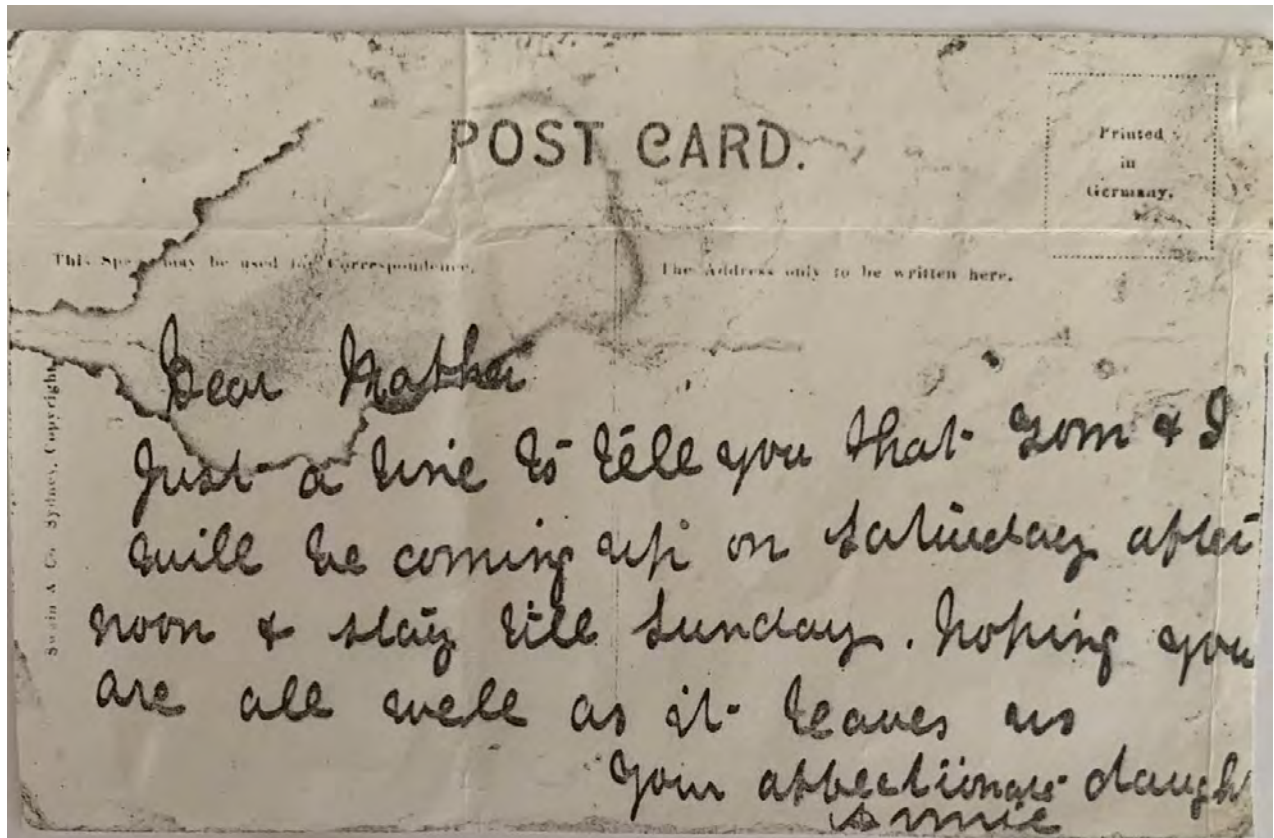 POST CARD.
Printed
in
Germany.
This Space may be used for Correspondence.
The Address only to be written here.
Swain & Co. Sydney, Copyright
Dear Mother
Just a line to tell you that Tom & I
will be coming up on Saturday after
noon & stay till Sunday. hoping you
are all well as it leaves us
Your affectionate daught
Annie